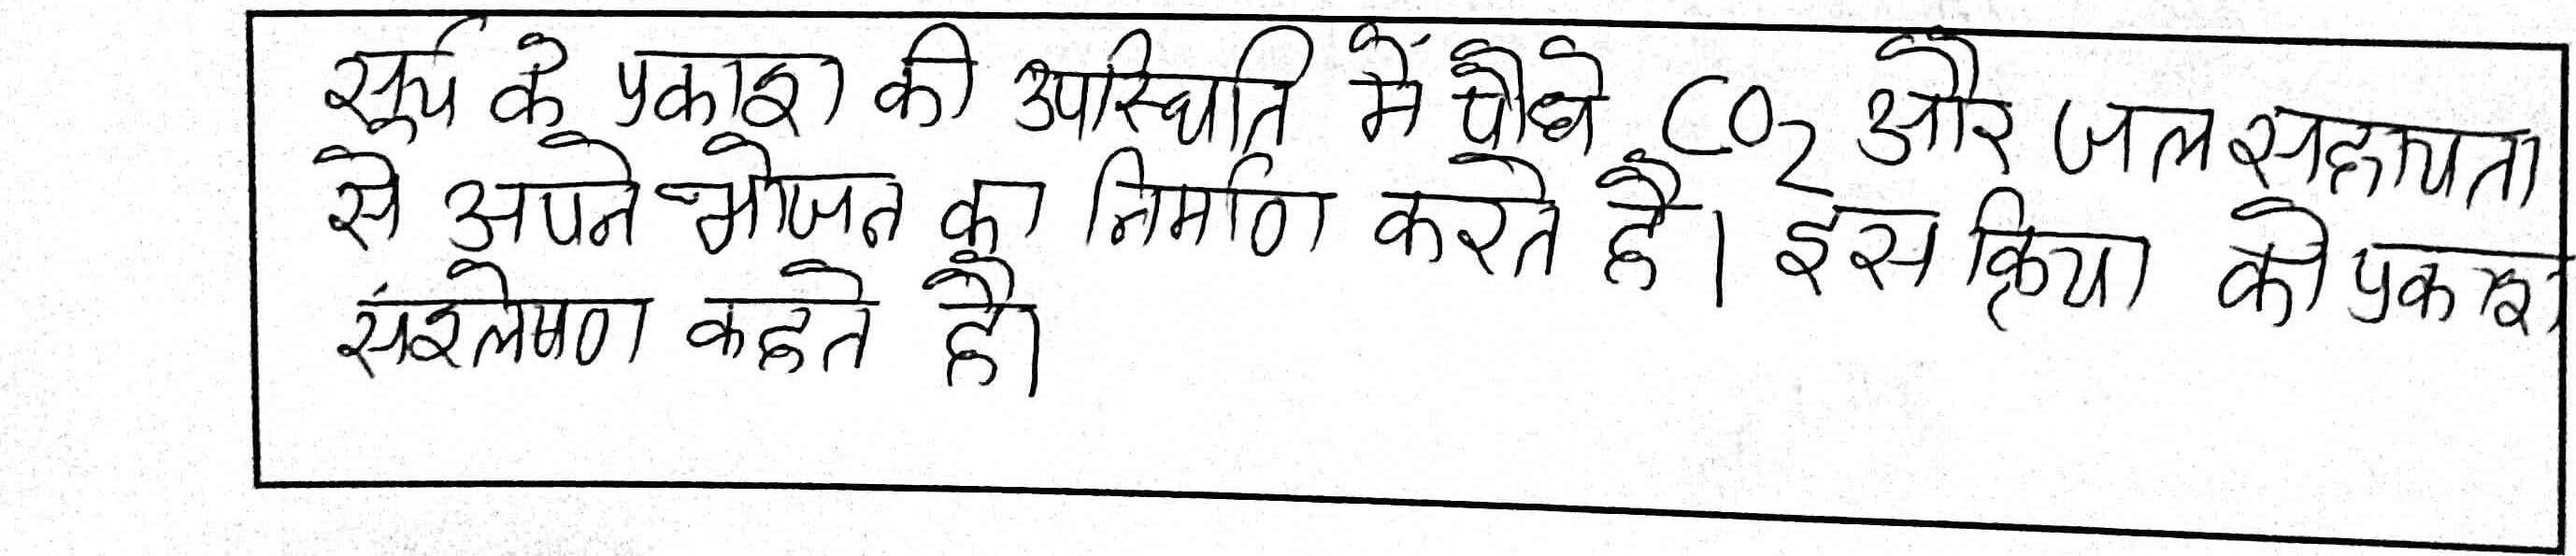 सूर्य के प्रकाश की उपस्थिति में पौधे CO₂ और जल सहायता
से अपने भोजन का निर्माण करते है। इस क्रिया को प्रकाश
संश्लेषण कहते है।